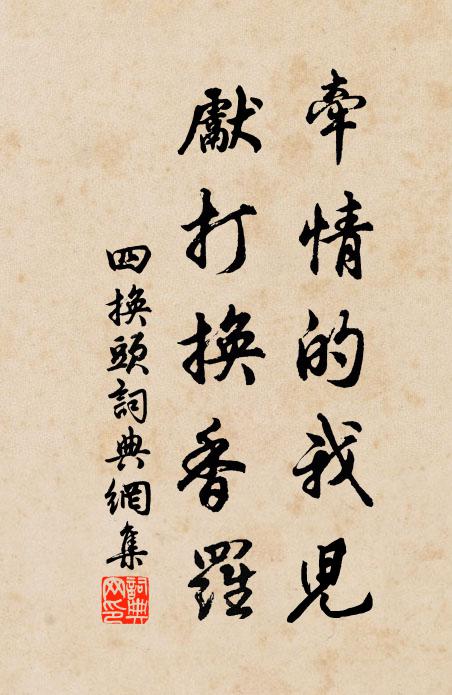 牽情的我兒
獻打換香羅
四換頭詞典網集
詞典網印